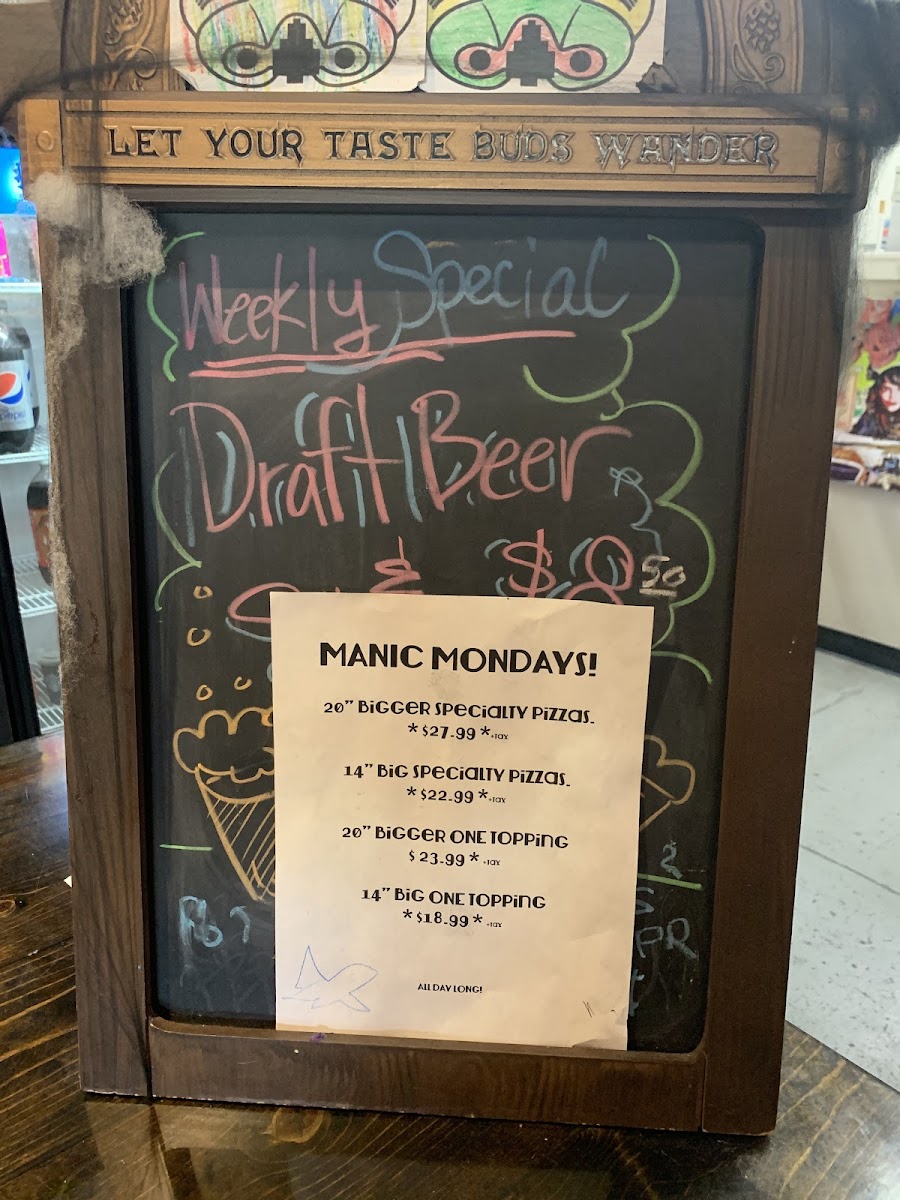 LET YOUR TASTE BUDS WANDER
Weekly Special
Draft Beer
& $8 50
MANIC MONDAYS!
20" BIGGER SPECIALTY PIZZAS.
*$27.99*+TAX
14" BIG SPECIALTY PIZZAS.
*$22.99*+TAX
20" BIGGER ONE TOPPING
$23.99*+TAX
14" BIG ONE TOPPING
*$18.99*+TAX
ALL DAY LONG!
pepsi